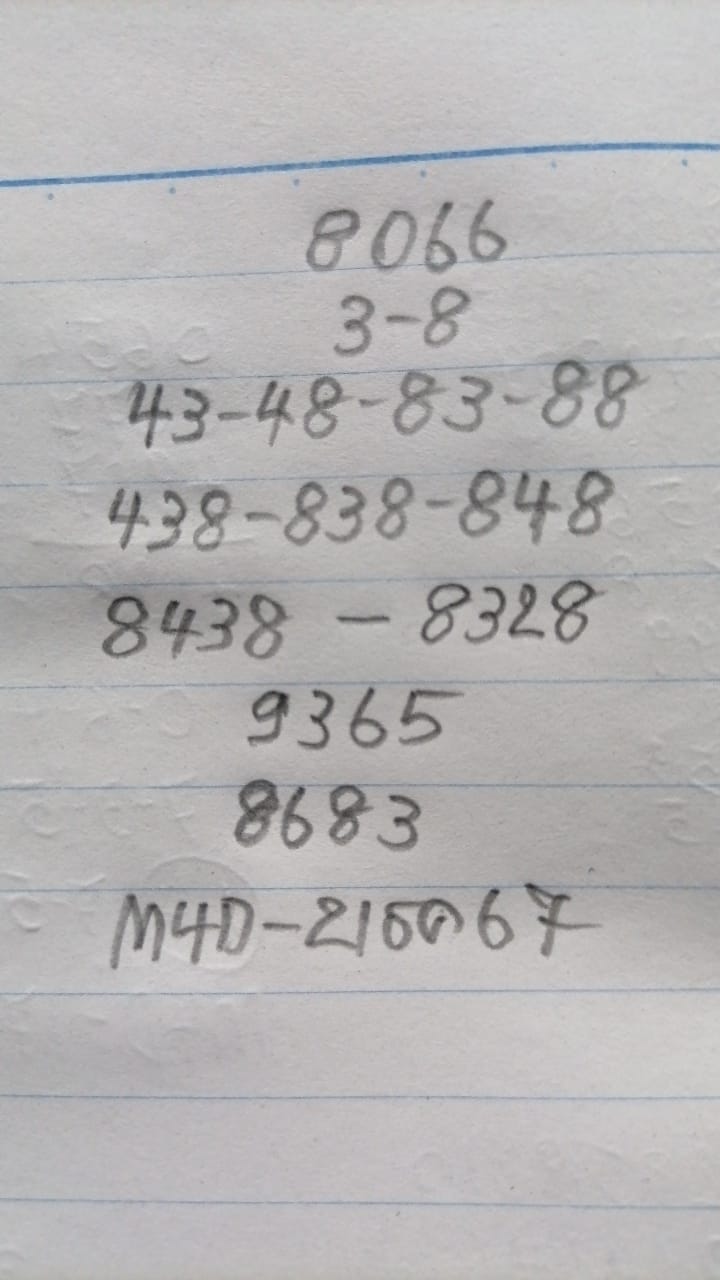 8066
3-8
43-48-83-88
438-838-848
8438 - 8328
9365
8683
M4D-2/ธค67